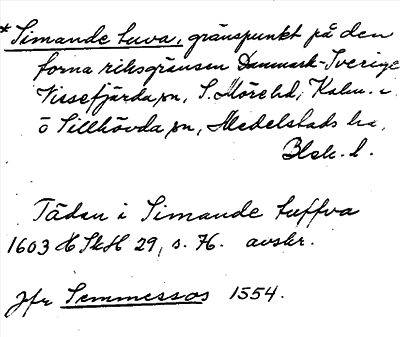 *Simande tuva, gränspunkt på den
forna riksgränsen Danmark-Sverige
Vissefjärda sn, S. Möre hd, Kalm. l.
ö Sillhövda sn, Medelstads hd,
Blek. l.
Tädan i Simande tuffva
1603 HSkH 29, s. 76. avskr.
Jfr Semmessos 1554.